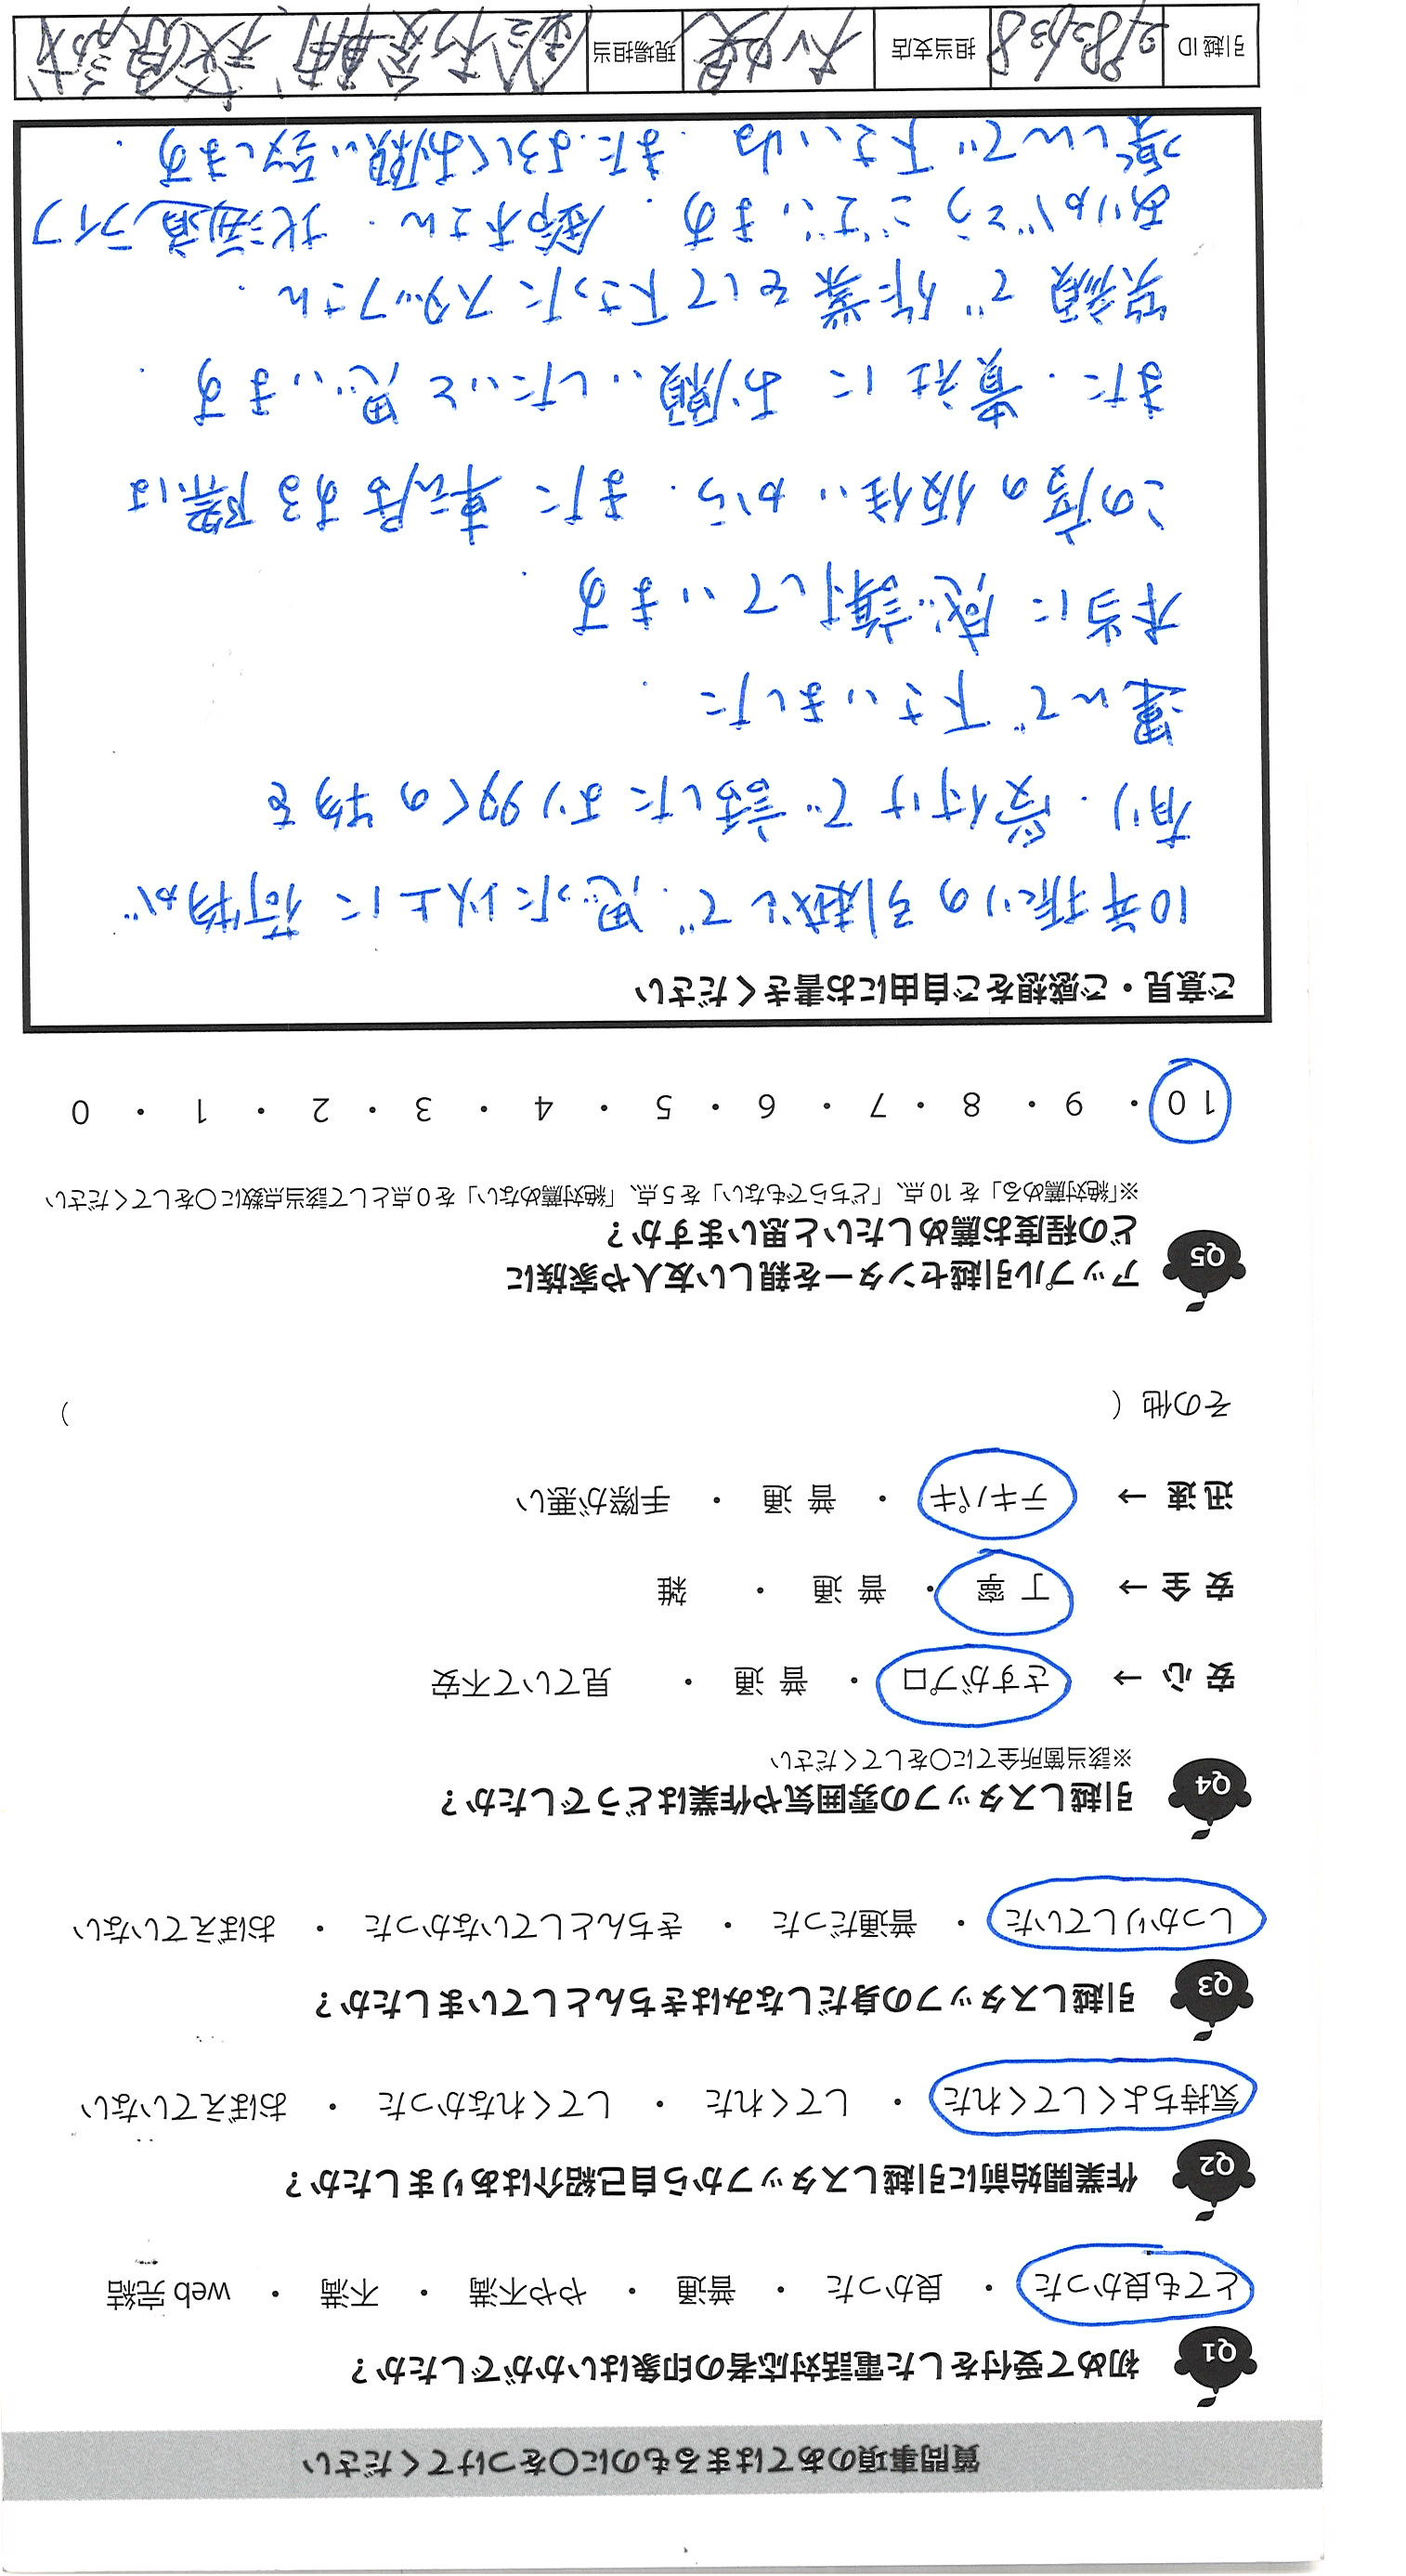 質問事項のあてはまるものに〇をつけてください
Q1 初めて受付をした電話対応者の印象はいかがでしたか？
とても良かった ・ 良かった ・ 普通 ・ やや不満 ・ 不満 ・ web 完結
Q2 作業開始前に引越しスタッフから自己紹介はありましたか？
気持ちよくしてくれた ・ してくれた ・ してくれなかった ・ おぼえていない
Q3 引越しスタッフの身だしなみはきちんとしていましたか？
しっかりしていた ・ 普通だった ・ きちんとしていなかった ・ おぼえていない
Q4 引越しスタッフの雰囲気や作業はどうでしたか？
※該当箇所全てに〇をしてください
安 心 → さすがプロ ・ 普 通 ・ 見ていて不安
安 全 → 丁 寧 ・ 普 通 ・ 雑
迅 速 → テキパキ ・ 普 通 ・ 手際が悪い
その他（ ）
Q5 アップル引越センターを親しい友人や家族に
どの程度お薦めしたいと思いますか？
※「絶対薦める」を 10 点、「どちらでもない」を 5 点、「絶対薦めない」を 0 点として該当点数に〇をしてください
10 ・ 9 ・ 8 ・ 7 ・ 6 ・ 5 ・ 4 ・ 3 ・ 2 ・ 1 ・ 0
ご意見・ご感想をご自由にお書きください
10年振りの引越しで、思った以上に荷物が
有り、受付けで話したより多くの物を
運んで下さいました.
本当に感謝しています.
この度の仮住いから、また転居する際は
また、貴社にお願いしたいと思います.
笑顔で作業をして下さったスタッフさん、
ありがとうございます. 鈴木さん、北海道ライフ
楽しんで下さいね. またよろしくお願い致します.
引越 ID 担当支店 現場担当